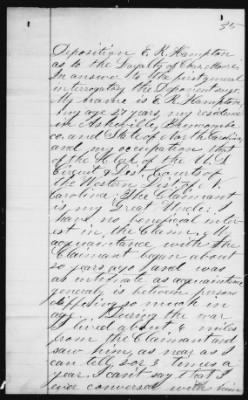 35
Deposition E. R. Hampton
as to the Loyalty of
In answer to the first general
interrogatory the Deponent says
My name is E. R. Hampton,
my age 37 years, my residence
in Asheville, Buncombe
co. and State of North Carolina,
and my occupation that
of the Clerk of the U.S
Circuit & Dist. Courts of
the Western Dist of N.
Carolina. The Claimant
is my Great Uncle. I
have no beneficial inter
est in the Claim. My
acquaintance with the
Claimant began about
20 years ago and was
as intimate as acquaintance
generally is between persons
differing so much in
age. During the war
I lived about 6 miles
from the Claimant and
saw him, as near as I
can tell, 2 or 3 times a
year. I cant say that I
ever conversed with him